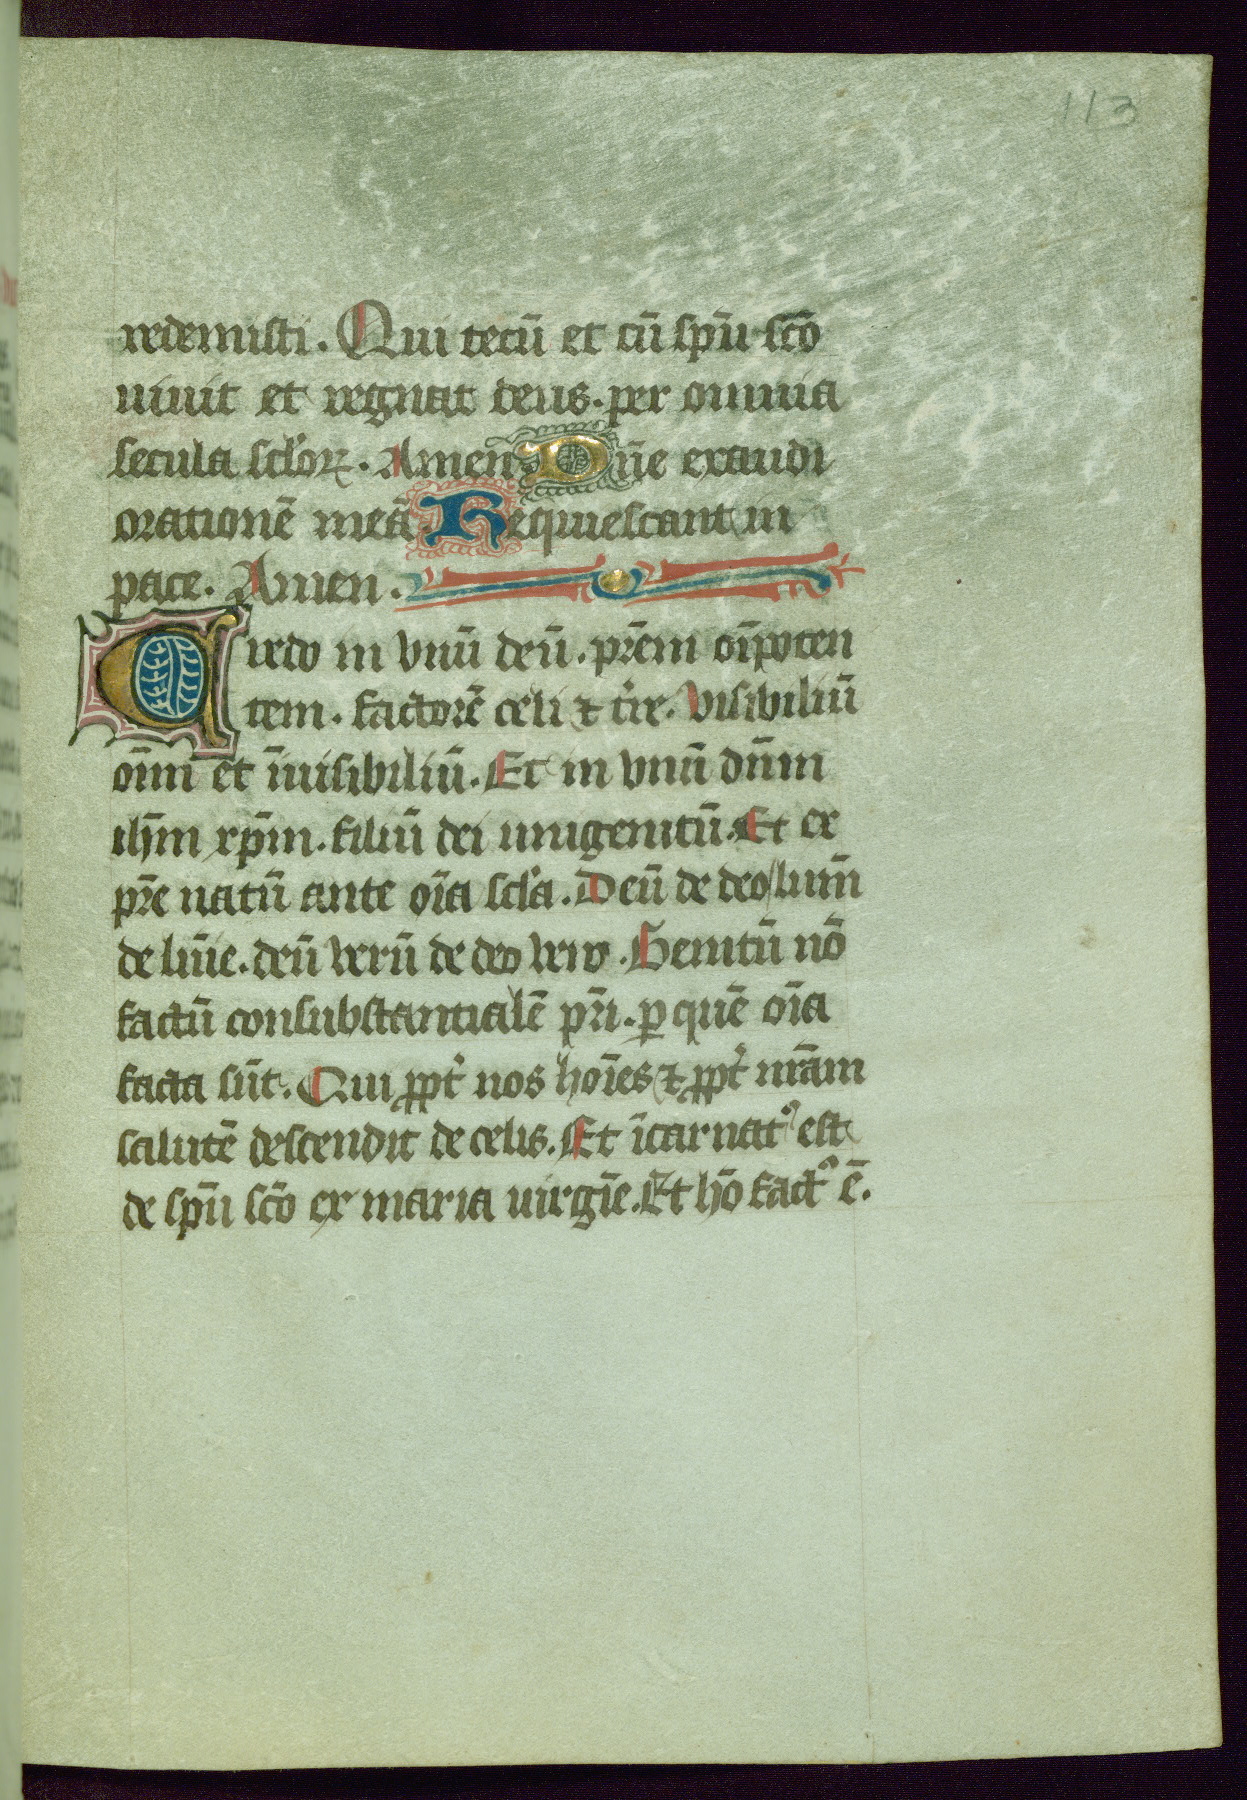 113
redemisti. Qui tecū et cū spū scō
uiuit et regnat deus. per omnia
secula sclоꝝ. Amen Dn̄e exaudi
orationē meā. Requiescant in
pace. Amen.
Credo in vnū deū. pr̄em oīpoten
tem. factorē celi ⁊ tr̄e. visibiliū
oīm et īuisibiliū. Et in vnū dn̄m
ih̄m xp̄m. filiū dei unigenitū. Et ex
pr̄e natū ante oīa scl̄a. Deū de deo lum̄
de lūie. deū verū de deo vero. Genitū nō
factū consubstantialē pr̄i. ꝑ quē oīa
facta sūt. Qui ꝓpt̄ nos hoīes ⁊ ꝓpt̄ nr̄am
salutē descendit de celis. Et īcarnatꝰ est
de spū scō ex maria uirgīe. Et hō factꝰ ē.